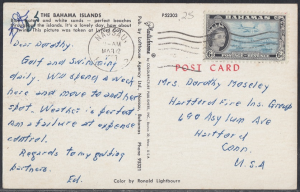 THE BAHAMA ISLANDS
and white sands - perfect beaches
It's a lovely day, how about
This picture was taken at
P52303
25
BAHAMAS
POST CARD
Dear Dorothy:
Golf and Swimming
daily. Will spend a week
here and move to another
spot. Weather is perfect.
Am a failure at expense
control.
Regards to my golfing
partners.
Ed.
Mrs. Dorothy Moseley
Hartford Fire Ins. Group
690 Asylum Ave
Hartford
Conn.
U.S.A
Color by Ronald Lightbourn